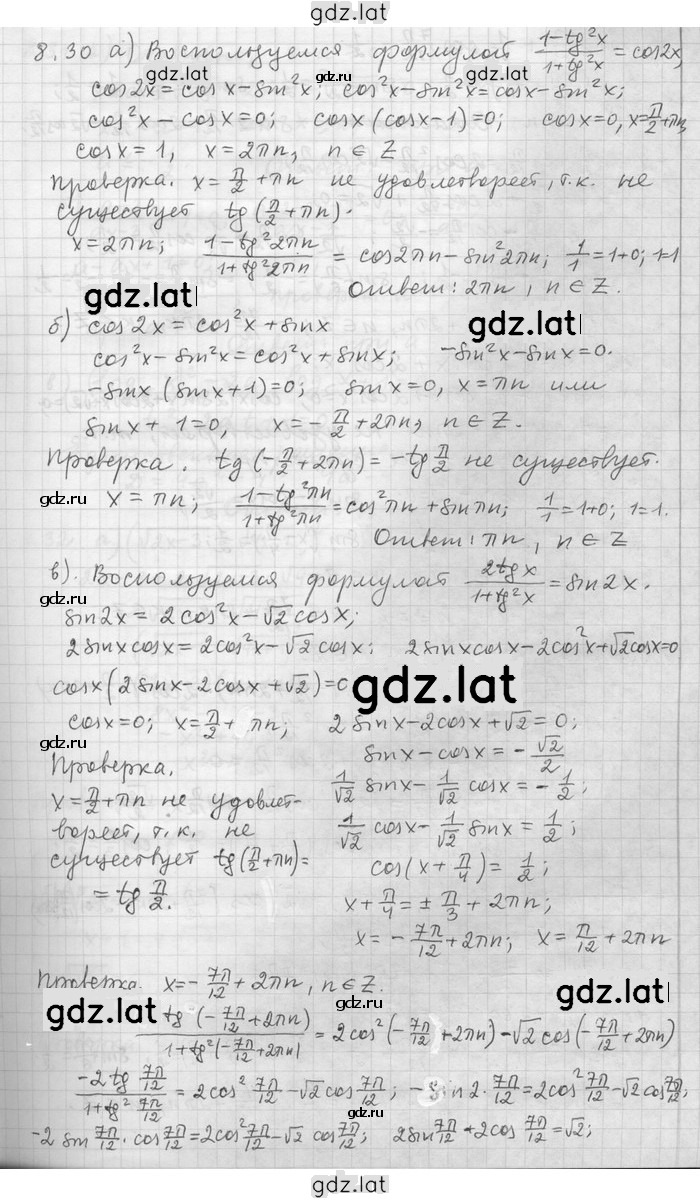 gdz.lat
8.30 а) Воспользуемся формулой (1-tg²x)/(1+tg²x) = cos2x,
cos2x = cosx - sin²x; cos²x - sin²x = cosx - sin²x;
cos²x - cosx = 0; cosx(cosx-1)=0; cosx=0, x=π/2+πn,
cosx = 1, x = 2πn, n ∈ Z
Проверка. x = π/2 + πn не удовлетвореет, т.к. не
существует tg(π/2 + πn).
x = 2πn; (1-tg²2πn)/(1+tg²2πn) = cos2πn - sin²2πn; 1/1 = 1+0; 1=1
gdz.lat
Ответ: 2πn, n ∈ Z.
gdz.lat
б) cos2x = cos²x + sinx
cos²x - sin²x = cos²x + sinx; -sin²x - sinx = 0.
-sinx(sinx+1)=0; sinx=0, x=πn или
sinx + 1=0, x = -π/2 + 2πn, n ∈ Z.
Проверка. tg(-π/2 + 2πn) = -tg π/2 не существует.
gdz.ru
x = πn; (1-tg²πn)/(1+tg²πn) = cos²πn + sinπn; 1/1 = 1+0; 1=1.
Ответ: πn, n ∈ Z
в). Воспользуемся формулой 2tgx/(1+tg²x) = sin2x.
gdz.ru
sin2x = 2cos²x - √2cosx;
2sinxcosx = 2cos²x - √2cosx; 2sinxcosx - 2cos²x + √2cosx = 0
cosx(2sinx - 2cosx + √2) = 0
gdz.lat
cosx=0; x = π/2 + πn; 2sinx - 2cosx + √2 = 0;
gdz.ru
sinx - cosx = -√2/2
Проверка. 1/√2 sinx - 1/√2 cosx = -1/2;
x = π/2 + πn не удовлет-
вореет, т.к. не 1/√2 cosx - 1/√2 sinx = 1/2;
существует tg(π/2+πn) = cos(x + π/4) = 1/2;
gdz.ru
= tg π/2. x + π/4 = ± π/3 + 2πn;
x = -7π/12 + 2πn; x = π/12 + 2πn
Проверка. x = -7π/12 + 2πn, n ∈ Z.
gdz.lat
gdz.lat
tg(-7π/12 + 2πn)/(1+tg²(-7π/12+2πn)) = 2cos²(-7π/12 + 2πn) - √2 cos(-7π/12 + 2πn)
-2tg 7π/12/(1+tg² 7π/12) = 2cos² 7π/12 - √2cos 7π/12; -sin2· 7π/12 = 2cos² 7π/12 - √2cos 7π/12;
gdz.ru
-2 sin 7π/12 · cos 7π/12 = 2cos² 7π/12 - √2 cos 7π/12; 2sin 7π/12 + 2cos 7π/12 = √2;
gdz.lat